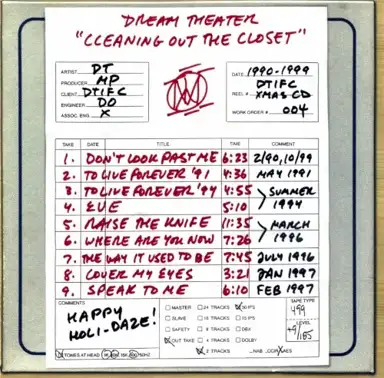 DREAM THEATER
"CLEANING OUT THE CLOSET"
ARTIST DT
PRODUCER MP
CLIENT DTIFC
ENGINEER DO
ASSOC. ENG. X
DATE 1990-1999
DTIFC
REEL # XMAS CD
WORK ORDER # 004
TAKE DATE TITLE TIME COMMENT
1. DON'T LOOK PAST ME 6:23 2/90, 10/99
2. TO LIVE FOREVER '91 4:36 MAY 1991
3. TO LIVE FOREVER '94 4:55 SUMMER
4. EVE 5:10 1994
5. RAISE THE KNIFE 11:35 MARCH
6. WHERE ARE YOU NOW 7:26 1996
7. THE WAY IT USED TO BE 7:45 JULY 1996
8. COVER MY EYES 3:21 JAN 1997
9. SPEAK TO ME 6:10 FEB 1997
COMMENTS
HAPPY
HOLI-DAZE!
MASTER 24 TRACKS 30 IPS
SLAVE 16 TRACKS 15 IPS
SAFETY 8 TRACKS DBX
OUT TAKE 4 TRACKS DOLBY
2 TRACKS NAB CCIR AES
TAPE TYPE
499
LEVEL
+9/185
TONES AT HEAD